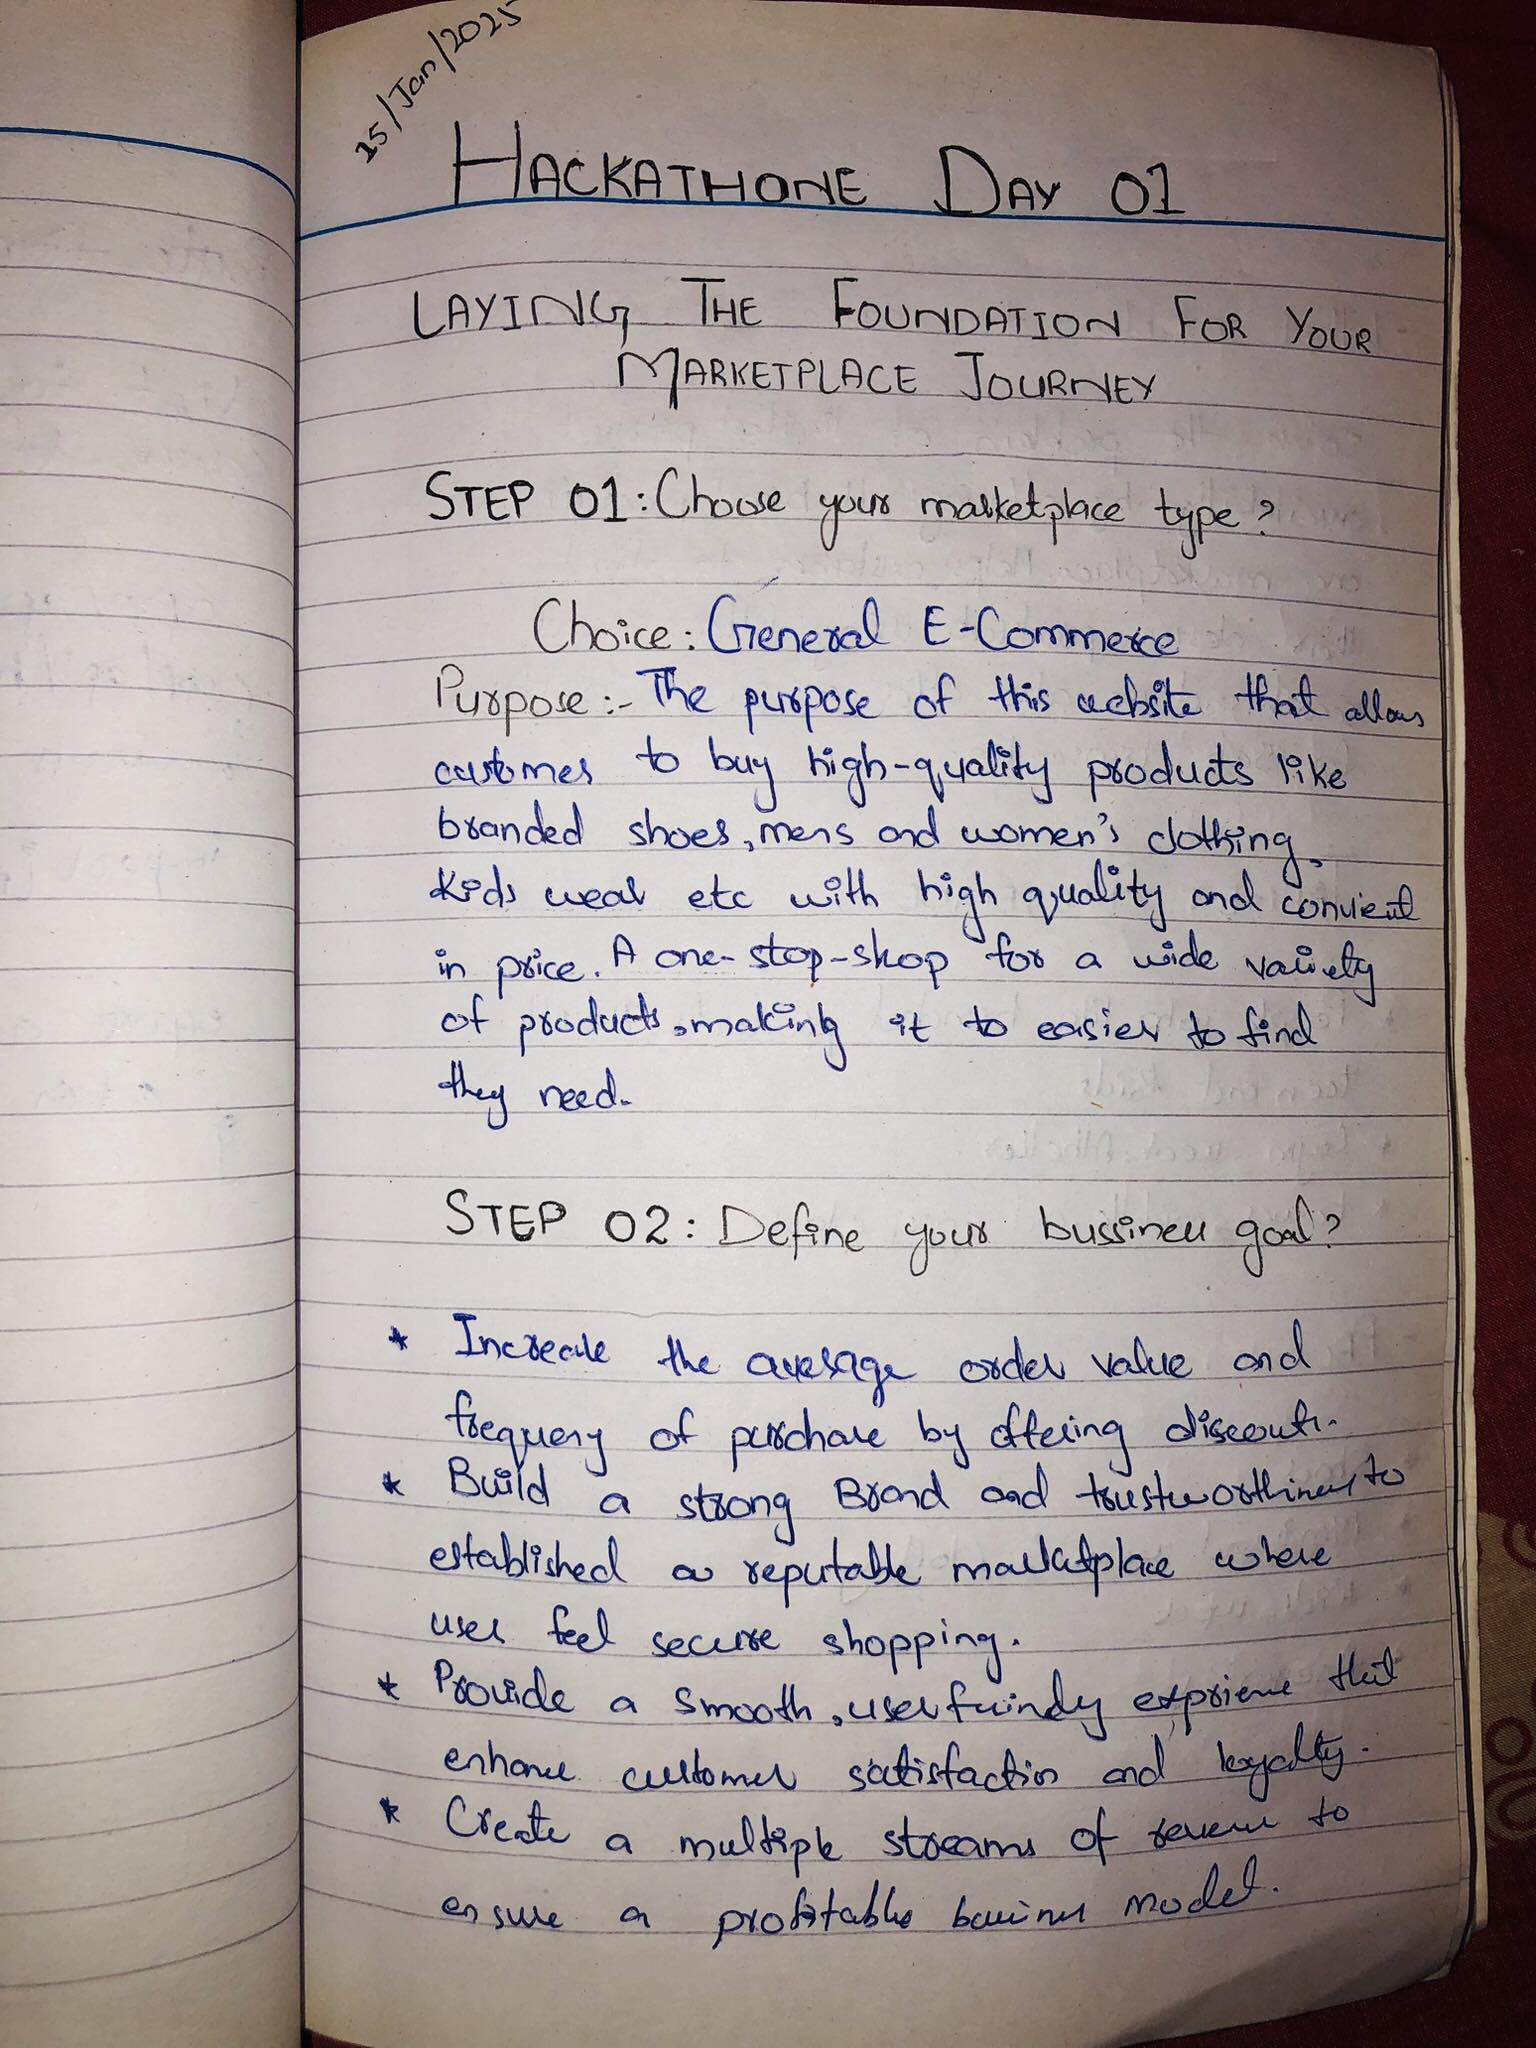 15/Jan/2025
HACKATHONE DAY 01
LAYING THE FOUNDATION FOR YOUR
MARKETPLACE JOURNEY
STEP 01: Choose your marketplace type?
Choice: General E-Commerce
Purpose:- The purpose of this website that allows
customes to buy high-quality products like
branded shoes, mens and women's clothing,
Kids wear etc with high quality and convient
in price. A one-stop-shop for a wide variety
of products, making it to easier to find
they need.
STEP 02: Define your bussiness goal?
* Increase the average order value and
frequeny of purchase by offering discounts.
* Build a strong Brand and trustworthiness to
established a reputable marketplace where
user feel secure shopping.
* Provide a smooth, user frindy exprience that
enhance customer satisfaction and loyalty.
* Create a multiple streams of revenue to
ensure a profitable business model.